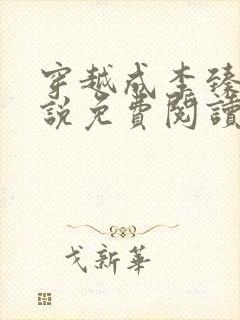 穿越成李臻
說免費閱讀
戈新華